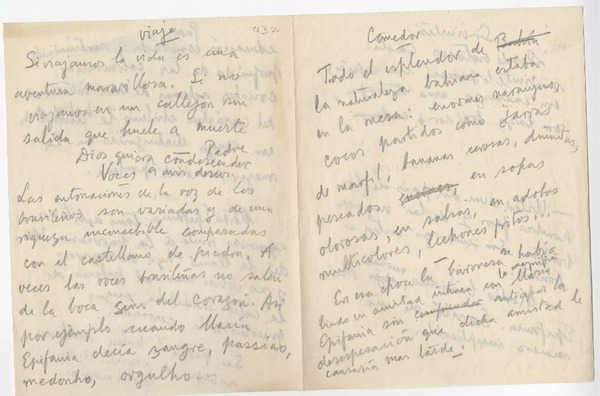 viaje
432
Si viajamos la vida es una
aventura maravillosa. Si no
viajamos en un callejón sin
salida que huele a muerte
Padre
Dios quiera condescender
Voces a mis deseos.
Las entonaciones de la voz de los
brasileños son variadas y de una
riqueza inconcebible comparadas
con el castellano de piedra. A
veces las voces brasileñas no salen
de la boca sino del corazón. Así
por ejemplo cuando María
Epifania decía sangre, passiao,
medonho, orgulho
Comedor
Todo el esplendor de Bahía
la naturaleza bahiana estaba
en la mesa: enormes naranjas,
cocos partidos como jarras
de marfil, bananas cerosas, diminutas,
pescados en sopas
olorosas, en salsas, en adobos
multicolores, lechones fritos...
En esa época la baronesa se había
liado en amistad íntima con María
Epifania sin anticipar la
desesperación que dicha amistad le
causaría más tarde.